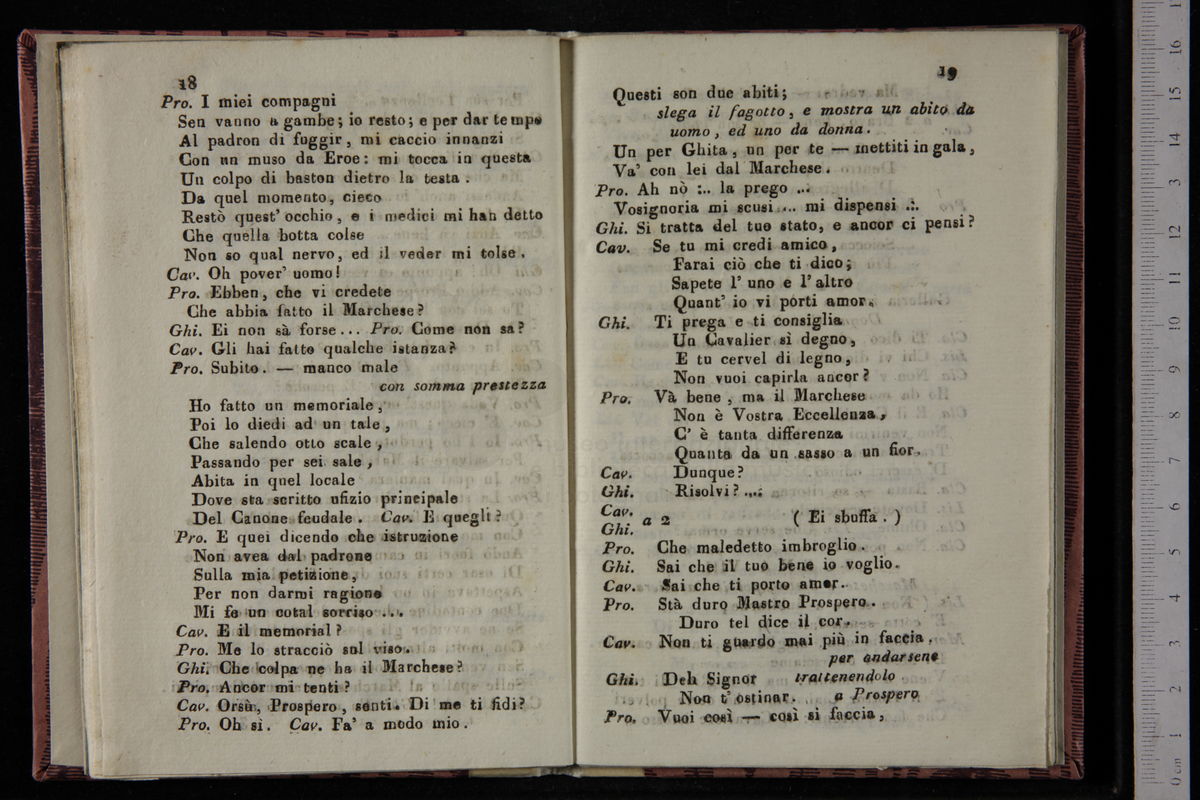 18
Pro. I miei compagni
Sen vanno a gambe; io resto; e per dar tempo
Al padron di fuggir, mi caccio innanzi
Con un muso da Eroe: mi tocca in questa
Un colpo di baston dietro la testa.
Da quel momento, cieco
Restò quest' occhio, e i medici mi han detto
Che quella botta colse
Non so qual nervo, ed il veder mi tolse.
Cav. Oh pover' uomo!
Pro. Ebben, che vi credete
Che abbia fatto il Marchese?
Ghi. Ei non sà forse... Pro. Come non sa?
Cav. Gli hai fatto qualche istanza?
Pro. Subito. — manco male
con somma prestezza
Ho fatto un memoriale,
Poi lo diedi ad un tale,
Che salendo otto scale,
Passando per sei sale,
Abita in quel locale
Dove sta scritto ufizio principale
Del Canone feudale. Cav. E quegli?
Pro. E quei dicendo che istruzione
Non avea dal padrone
Sulla mia petizione,
Per non darmi ragione
Mi fe un cotal sorriso ...
Cav. E il memorial?
Pro. Me lo stracciò sul viso.
Ghi. Che colpa ne ha il Marchese?
Pro. Ancor mi tenti?
Cav. Orsù, Prospero, senti. Di me ti fidi?
Pro. Oh sì. Cav. Fa' a modo mio.
19
Questi son due abiti;
slega il fagotto, e mostra un abito da
uomo, ed uno da donna.
Un per Ghita, un per te — mettiti in gala,
Va' con lei dal Marchese.
Pro. Ah nò ... la prego ...
Vosignoria mi scusi ... mi dispensi ...
Ghi. Si tratta del tuo stato, e ancor ci pensi?
Cav. Se tu mi credi amico,
Farai ciò che ti dico;
Sapete l' uno e l' altro
Quant' io vi porti amor.
Ghi. Ti prega e ti consiglia
Un Cavalier sì degno,
E tu cervel di legno,
Non vuoi capirla ancor?
Pro. Và bene, ma il Marchese
Non è Vostra Eccellenza,
C' è tanta differenza
Quanta da un sasso a un fior.
Cav. Dunque?
Ghi. Risolvi? ....
Cav.
Ghi. a 2 ( Ei sbuffa. )
Pro. Che maledetto imbroglio.
Ghi. Sai che il tuo bene io voglio.
Cav. Sai che ti porto amor.
Pro. Stà duro Mastro Prospero.
Duro tel dice il cor.
Cav. Non ti guardo mai più in faccia.
per andarsene
Ghi. Deh Signor trattenendolo
Non t' ostinar. a Prospero
Pro. Vuoi così — così si faccia,
0 cm 1 2 3 4 5 6 7 8 9 10 11 12 13 14 15 16 17